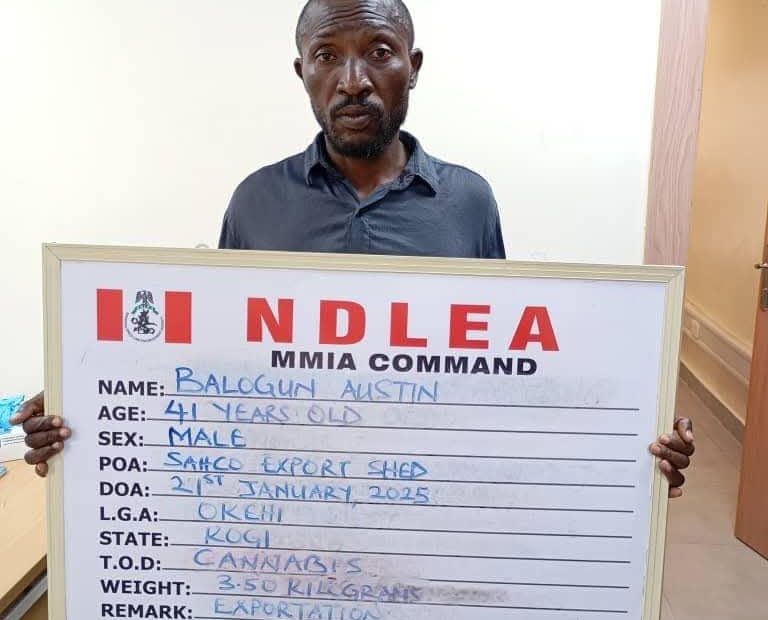 NDLEA
MMIA COMMAND
NAME: BALOGUN AUSTIN
AGE: 41 YEARS OLD
SEX: MALE
POA: SAHCO EXPORT SHED
DOA: 21ST JANUARY, 2025
L.G.A: OKEHI
STATE: KOGI
T.O.D: CANNABIS
WEIGHT: 3.50 KILOGRAMS
REMARK: EXPORTATION